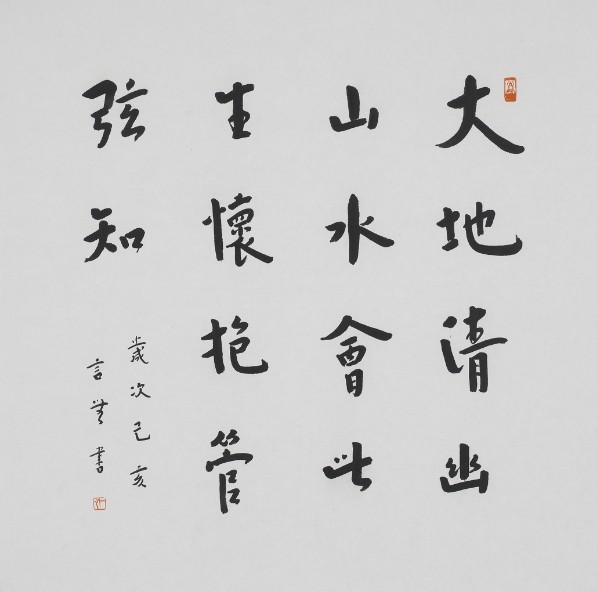 大地清幽
山水會此
生懷抱管
弦知
歲次己亥
言書